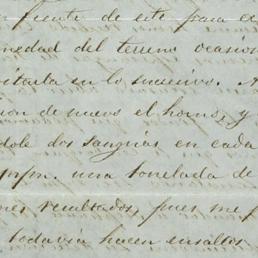 fuente de este para e
medad del terreno ocasio
vitarla en lo sucesivo. A
ion de nuevo el horno, y
dole dos sangrías en cada
una tonelada de
nes resultados, pues me
todavía hacen ensaltos